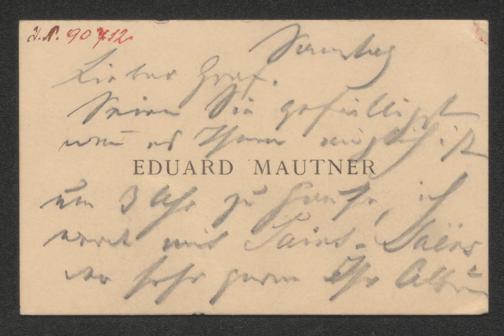 I.N. 90712
Sonntag
Lieber Graf.
Seien Sie gefälligst
wenn es Ihnen möglich ist
EDUARD MAUTNER
um 3 Uhr zu Hause, ich
werde mit Saint-Saëns
sehr gerne Ihr Album